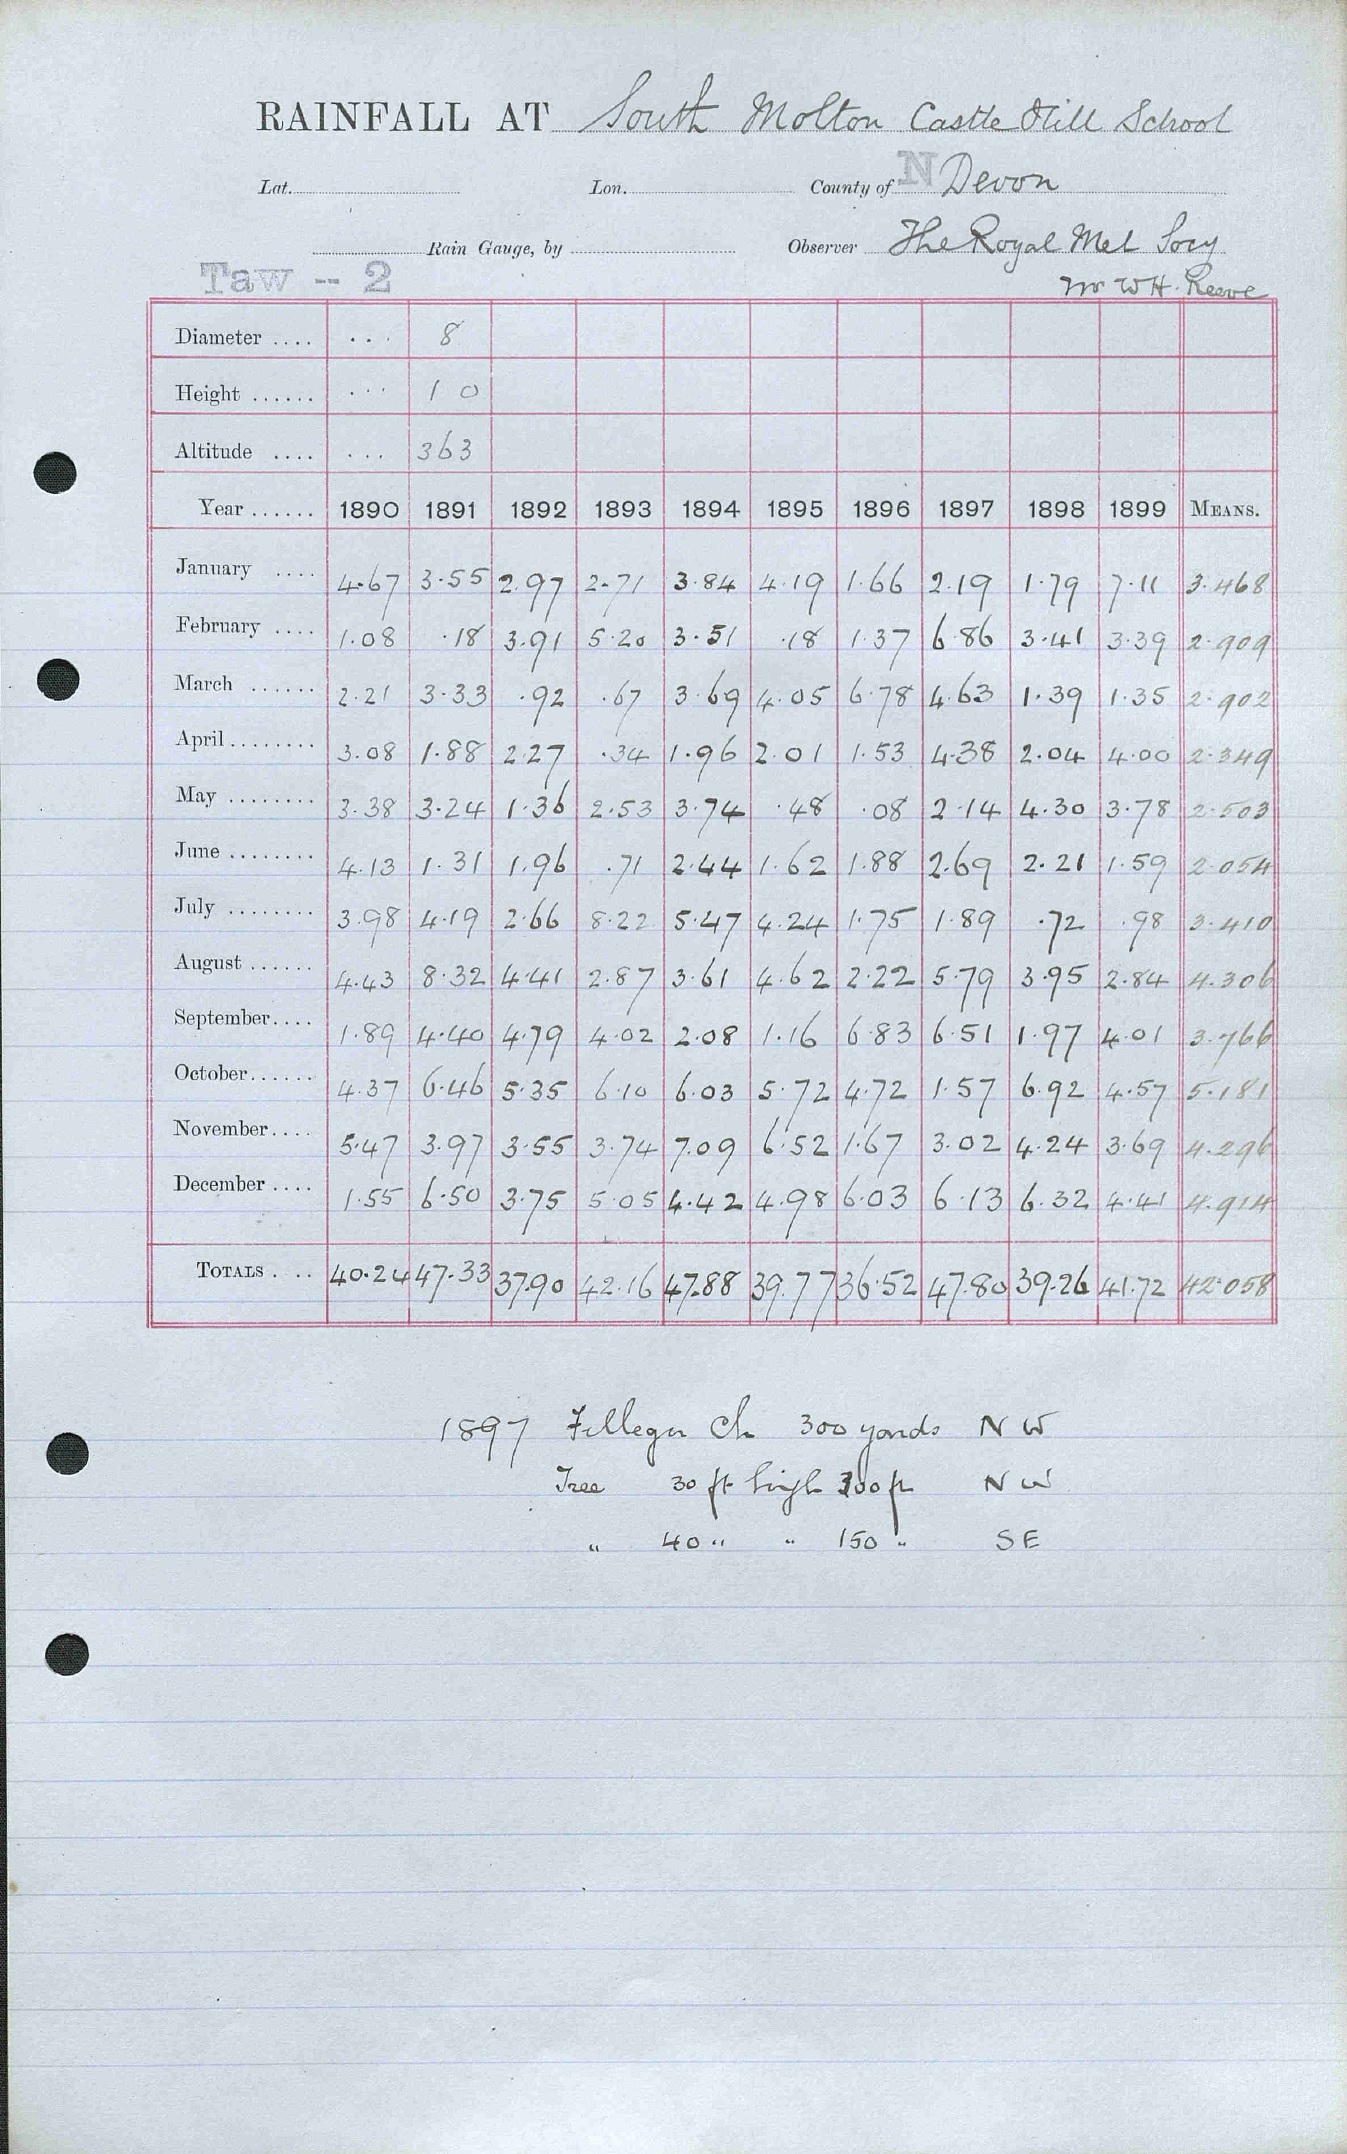 RAINFALL AT South Molton Castle Hill School
Lat. Lon. County of N Devon
Rain Gauge, by Observer The Royal Met Socy
Taw -- 2 Mr W H Reeve
Diameter .... ... 8
Height ...... ... 1 0
Altitude .... ... 363
Year ...... 1890 1891 1892 1893 1894 1895 1896 1897 1898 1899 MEANS.
January .... 4.67 3.55 2.97 2.71 3.84 4.19 1.66 2.19 1.79 7.11 3.468
February .... 1.08 .18 3.91 5.20 3.51 .18 1.37 6.86 3.41 3.39 2.909
March ...... 2.21 3.33 .92 .67 3.69 4.05 6.78 4.63 1.39 1.35 2.902
April ........ 3.08 1.88 2.27 .34 1.96 2.01 1.53 4.38 2.04 4.00 2.349
May ........ 3.38 3.24 1.36 2.53 3.74 .48 .08 2.14 4.30 3.78 2.503
June ........ 4.13 1.31 1.96 .71 2.44 1.62 1.88 2.69 2.21 1.59 2.054
July ........ 3.98 4.19 2.66 8.22 5.47 4.24 1.75 1.89 .72 .98 3.410
August ...... 4.43 8.32 4.41 2.87 3.61 4.62 2.22 5.79 3.95 2.84 4.306
September.... 1.89 4.40 4.79 4.02 2.08 1.16 6.83 6.51 1.97 4.01 3.766
October...... 4.37 6.46 5.35 6.10 6.03 5.72 4.72 1.57 6.92 4.57 5.181
November.... 5.47 3.97 3.55 3.74 7.09 6.52 1.67 3.02 4.24 3.69 4.296
December .... 1.55 6.50 3.75 5.05 4.42 4.98 6.03 6.13 6.32 4.41 4.914
TOTALS . .. 40.24 47.33 37.90 42.16 47.88 39.77 36.52 47.80 39.26 41.72 42.058
1897 Ch 300 yards N W
Tree 30 ft high 300 ft N W
" 40 " " 150 " S E